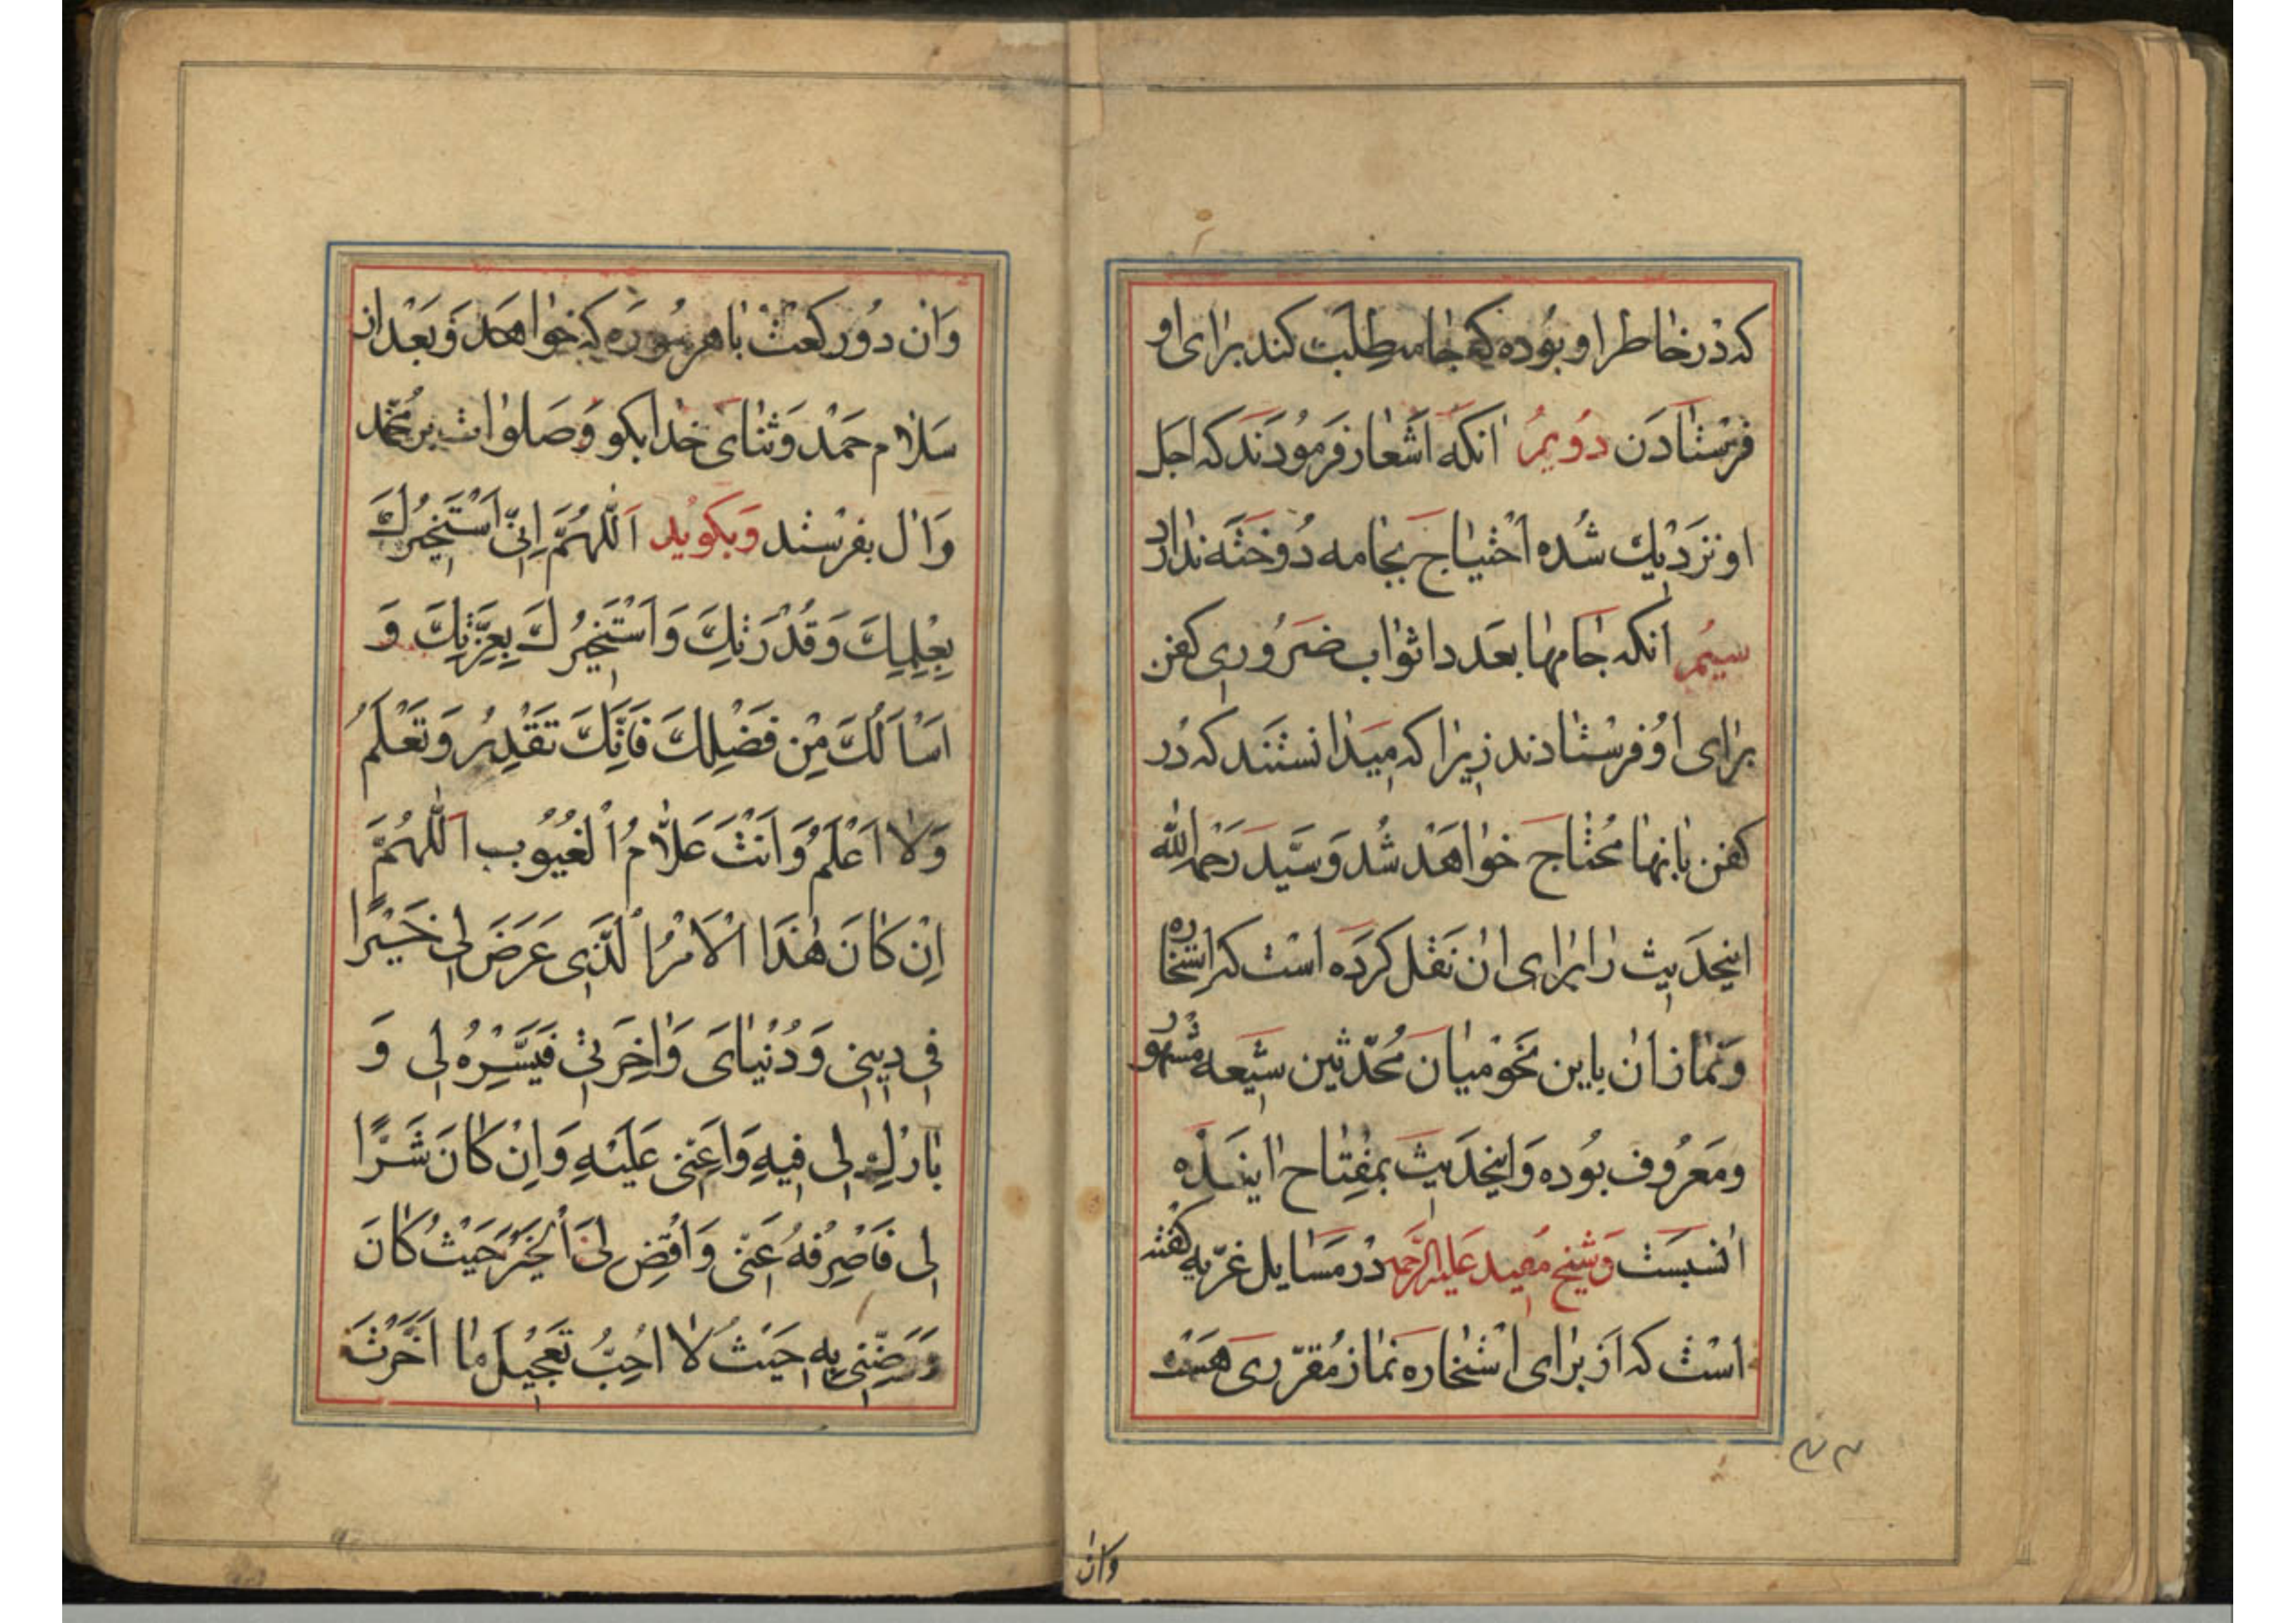 که در خاطر او بوده که جامه طلب کند برای او
فرستادن دویم انکه اشعار فرمودند که اجل
او نزدیك شده احتیاج بجامه دوخته ندارد
سیم انکه جامها بعدد اثواب ضروری کفن
برای او فرستادند زیرا که میدانستند که در
کفن بانها محتاج خواهد شد و سید رحمه الله
اینحدیث را برای ان نقل کرده است که استخاره
و نماز ان باین نحو میان محدثین شیعه مشهور
و معروف بوده و اینحدیث بمفتاح اینده
انسبست و شیخ مفید علیه الرحمه در مسایل غریه گفته
است که از برای استخاره نماز مقرری هست
وان
وَان دو رکعت با هر سوره که خواهد وَ بَعْد از
سَلام حَمْد وَ ثنای خدا بکو وَ صَلوات بر مُحَمَّد
وَ ال بفرستد وَ بکویُد اَللّهُمَّ اِنّی اَسْتَخیرُكَ
بِعِلْمِكَ وَ قُدْرَتِكَ وَ اَسْتَخیرُكَ بِعِزَّتِكَ وَ
اَسْاَلُكَ مِنْ فَضْلِكَ فَاِنَّكَ تَقْدِرُ وَ تَعْلَمُ
وَلا اَعْلَمُ وَ اَنْتَ عَلّامُ الْغُیُوب اَللّهُمَّ
اِنْ کانَ هٰذَا الْاَمْرُ الَّذی عَرَضَ لی خَیْرًا
فی دینی وَ دُنْیایَ وَ اخِرَتی فَیَسِّرْهُ لی وَ
بارِكْ لی فیهِ وَ اَعِنّی عَلَیْهِ وَ اِنْ کانَ شَرًّا
لی فَاصْرِفْهُ عَنّی وَ اقْضِ لیَ الْخَیْرَ حَیْثُ کانَ
وَ رَضِّنی بِهِ حَیْثُ لا اُحِبُّ تَعْجیلَ ما اَخَّرْتَ